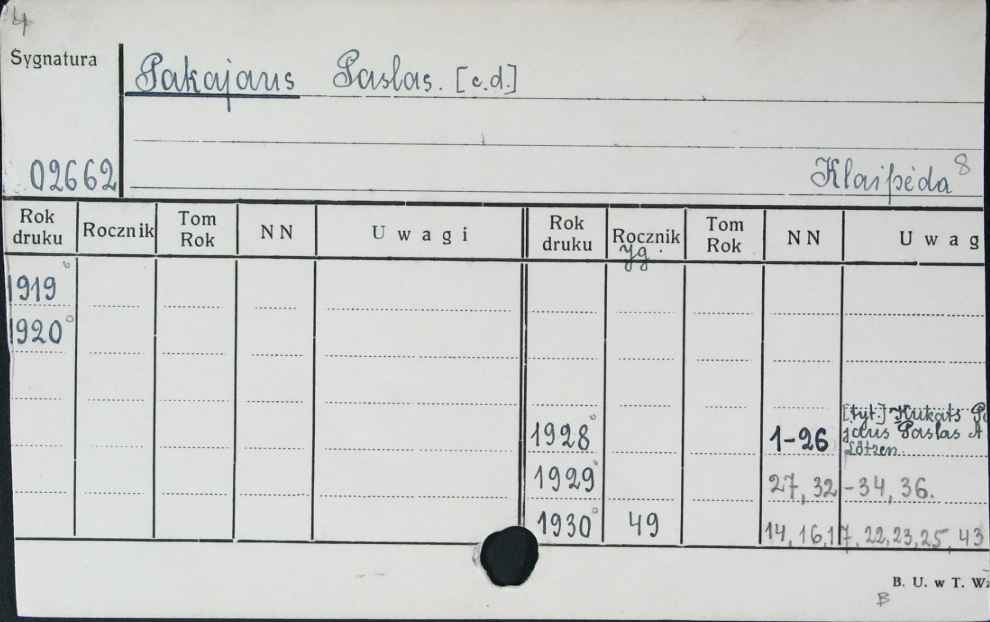 4
Sygnatura
Pakajaus Paslas. [c.d.]
02662
Klaipėda 8
Rok druku Rocznik Tom Rok NN Uwagi Rok druku Rocznik Jg. Tom Rok NN Uwag
1919°
1920°
[tyt.] Kukats Pa
1928° 1-26 jaus Paslas
Lötzen.
1929° 27, 32-34, 36.
1930° 49 14, 16, 17, 22, 23, 25, 43
B. U. w T. W
B